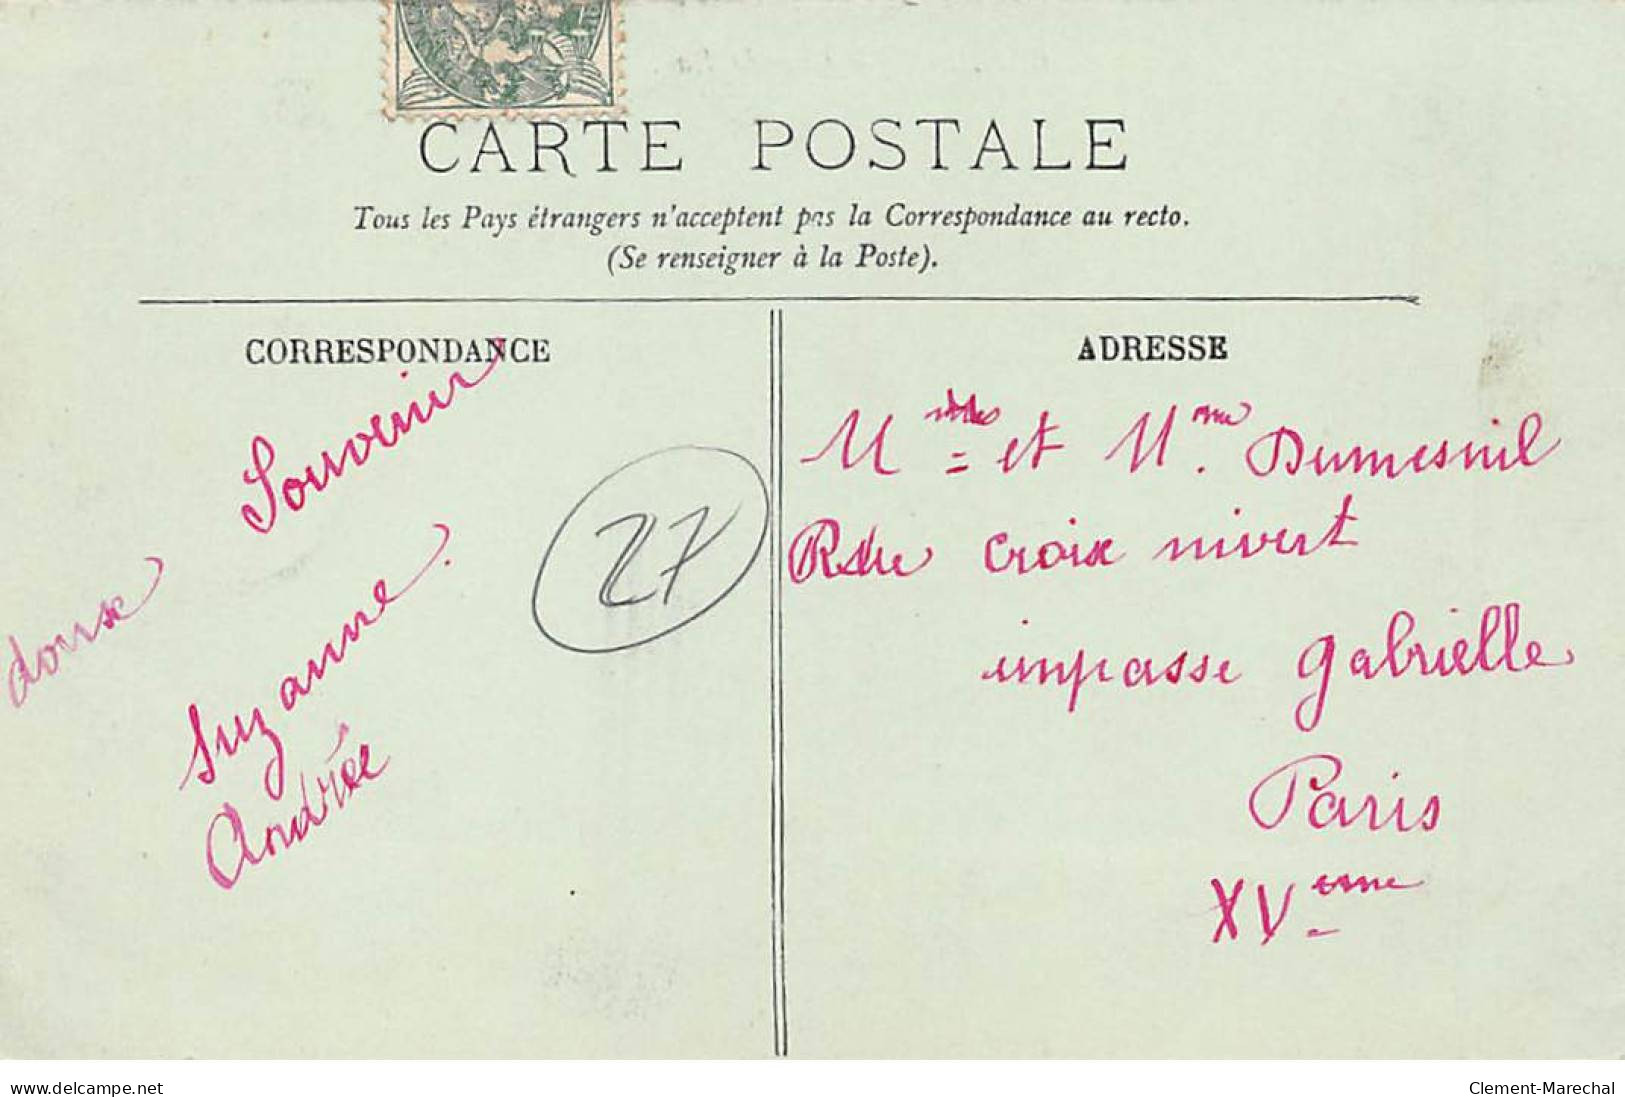 CARTE POSTALE
Tous les Pays étrangers n'acceptent pas la Correspondance au recto.
(Se renseigner à la Poste).
CORRESPONDANCE
Souvenir
Suzanne.
Andrée
27
ADRESSE
et Mme. Dumesnil
croix nivert
impasse gabrielle
Paris
XVeme
www.delcampe.net
Clement-Marechal